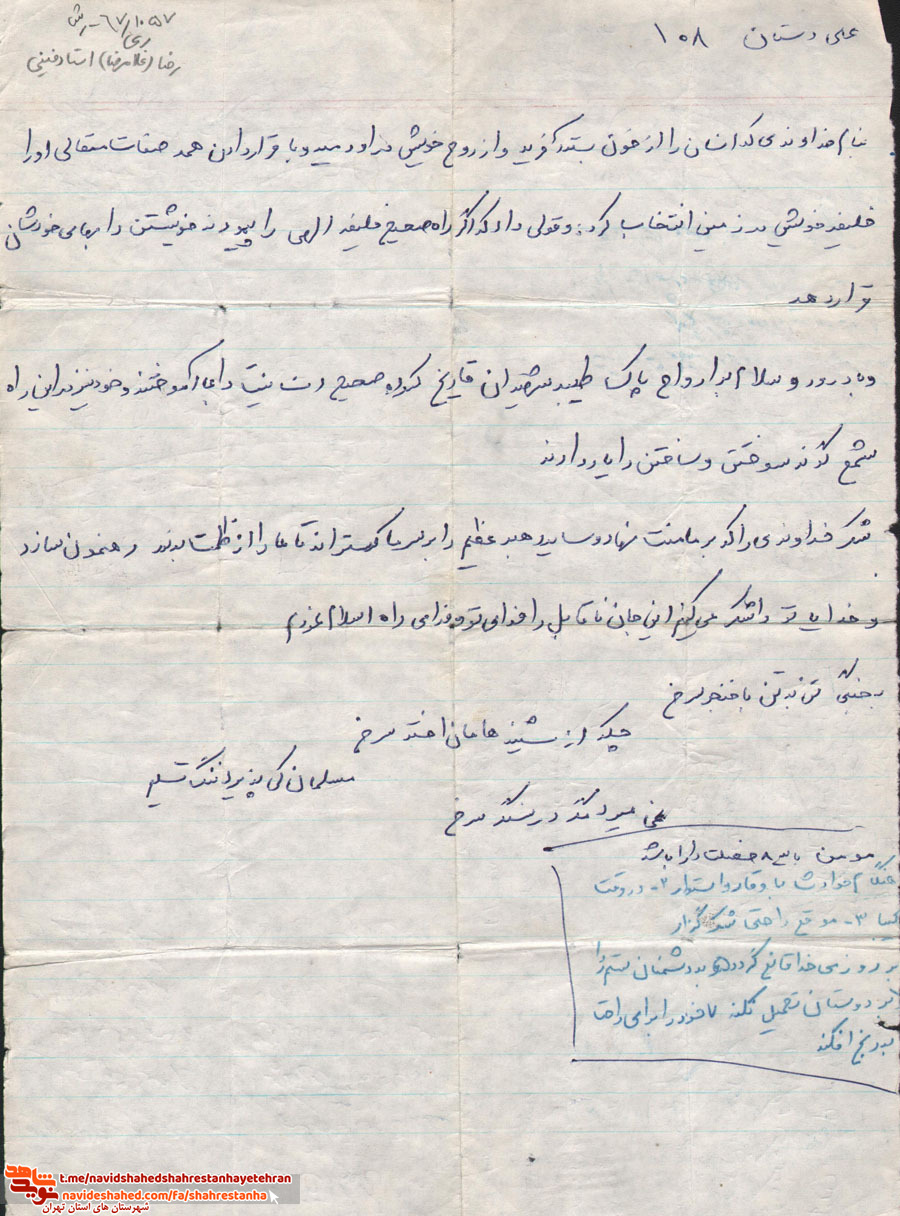 ۶۷/۱۰۵۷
ری
رضا (غلامرضا) استاد
علی دستان ۱۰۸
بنام خداوندی که انسان را از خون بسته آفرید و از روح خویش در او دمید و با قرار دادن همه صفات متعالی او را
خلیفه خویش در زمین انتخاب کرد و قولی داد که اگر راه صحیح خلیفه الهی را پیمودند خویشتن را بهای خودشان
قرار دهد
و با درود و سلام بر ارواح پاک طیبه شهیدان تاریخ که راه صحیح را بما آموختند و خود نیز در این راه
شمع گونه سوختن و ساختن را
شکر خداوندی را که بر ما منت نهاد و سایه رهبر عظیم را بر سر ما گستراند تا ما را از ظلمت بدر رهنمون سازد
و خدایا تو را شکر می کنم این جان ناقابل را فدای تو و فدای راه اسلام نمودم
بجنگ تن به تن با خنجر سرخ
چکد از سینه هامان اختر سرخ
مسلمان کی پذیرد ننگ تسلیم
نمی میرد مگر در سنگر سرخ
مومن باید ۸ خصلت دارا باشد
هنگام حوادث با وقار و استوار ۲- در وقت
۳- موقع راحتی شکر گزار
بر روزی خدا قانع گردد ۵ بر دشمنان ستم
بر دوستان تحمیل نکند ۷ خود را برای راحت
برنج افکند
t.me/navidshahedshahrestanhayetehran
navideshahed.com/fa/shahrestanha
نوید شاهد
شهرستان های استان تهران